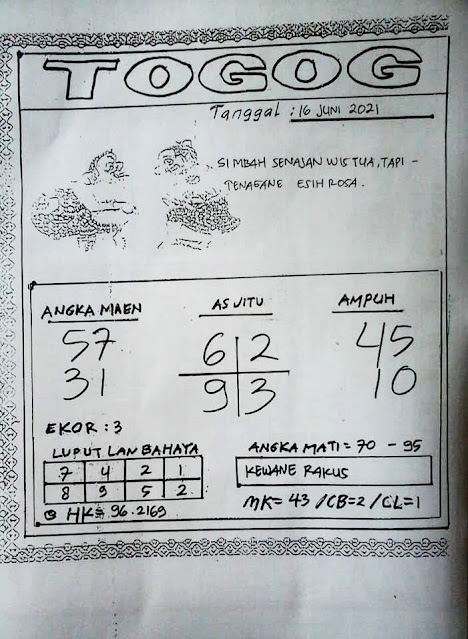 TOGOG
Tanggal : 16 JUNI 2021
SI MBAH SENAJAN WIS TUA, TAPI -
TENAGANE ESIH ROSA.
ANGKA MAEN
57
31
AS JITU
6 2
9 3
AMPUH
45
10
EKOR : 3
LUPUT LAN BAHAYA
7 4 2 1
8 9 5 2
HK= 96.2169
ANGKA MATI = 70 - 95
KEWANE RAKUS
MK= 43 / CB=2 / CL=1